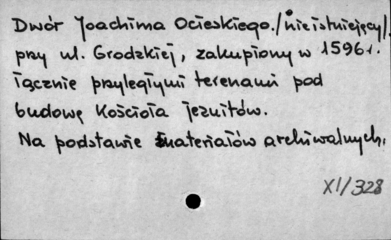 Dwór Joachima Ocieskiego /nieistniejący/,
przy ul. Grodzkiej, zakupiony w 1596 r.
łącznie przyległymi terenami pod
budowę Kościoła jezuitów.
Na podstawie materiałów archiwalnych.
XI/328